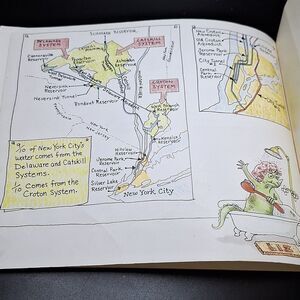 Schoharie Reservoir
DELAWARE
SYSTEM
CATSKILL
SYSTEM
Cannonsville
Reservoir
Pepacton
Reservoir
Ashokan
Reservoir
CROTON
SYSTEM
Neversink
Reservoir
Neversink Tunnel
Rondout Reservoir
New Croton
Reservoir
New York
New Jersey
Kensico
Reservoir
Hillview
Reservoir
Jerome Park
Reservoir
Central Park
Reservoir
Silver Lake
Reservoir
New York City
9/10 of New York City's
water comes from the
Delaware and Catskill
Systems.
1/10 Comes from the
Croton System.
New Croton
Aqueduct
Old Croton
Aqueduct
Jerome Park
Reservoir
City Tunnel
Central Park
Reservoir